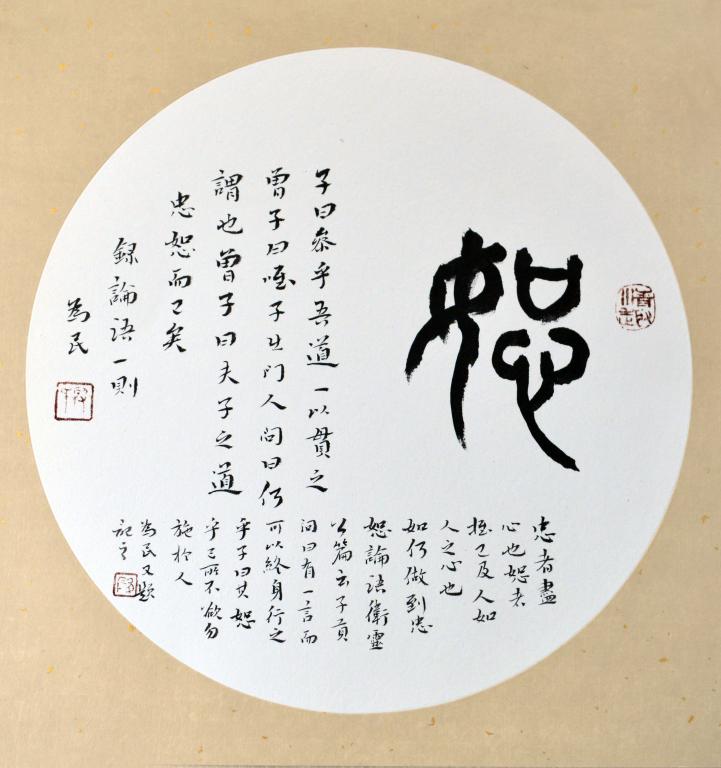 恕
子曰參乎吾道一以貫之
曾子曰唯子出門人問曰何
謂也曾子曰夫子之道
忠恕而已矣
錄論語一則
為民
忠者盡
心也恕者
推己及人如
人之心也
如何做到忠
恕論語衛靈
公篇云子貢
問曰有一言而
可以終身行之
乎子曰其恕
乎己所不欲勿
施於人
為民又題
記之